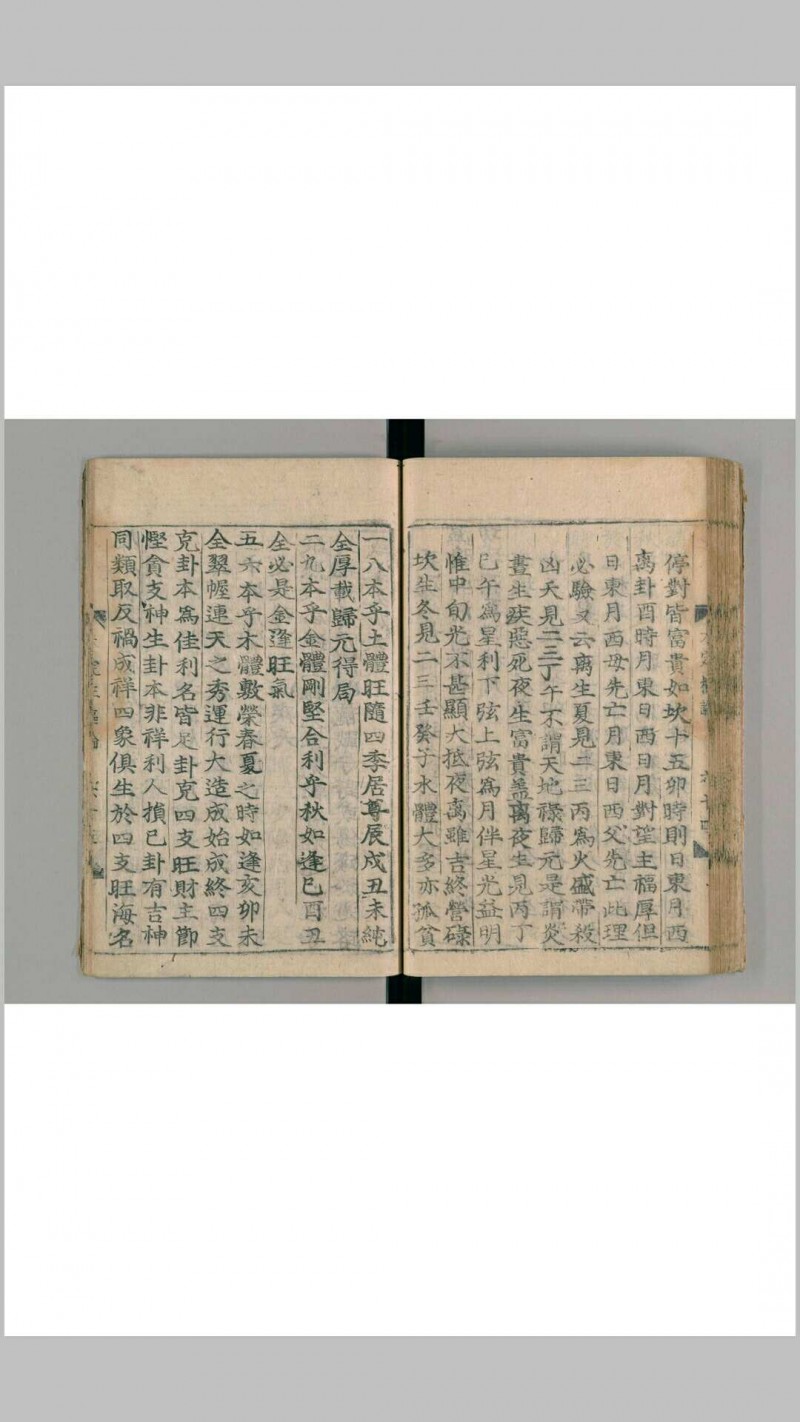 停對皆富貴如坎十五卯時則日東月西
离卦酉時月東日西日月對望主福厚但
日東月西母先亡月東日西父先亡此理
必驗又云离生夏見二三丙爲火盛帶殺
凶天見二三丁午不謂天地祿歸元是謂炎
晝生疾惡死夜生富貴盖离夜生見丙丁
巳午爲星利下弦上弦爲月伴星光益明
惟中旬光不甚顯大抵夜离雖吉終營碌
坎生冬見二三壬癸子水體大多亦孤貧
一八本乎土體旺隨四季居尊辰戌丑未純
全厚載歸元得局
二九本乎金體剛堅合利乎秋如逢巳酉丑
全必是金逢旺氣
五六本乎木體敷榮春夏之時如逢亥卯未
全翠幄連天之秀運行大造成始成終四支
克卦本爲佳利名皆足卦克四支旺財主節
慳貪支神生卦本非祥利人損己卦有吉神
同類取反禍成祥四象俱生於四支旺海名